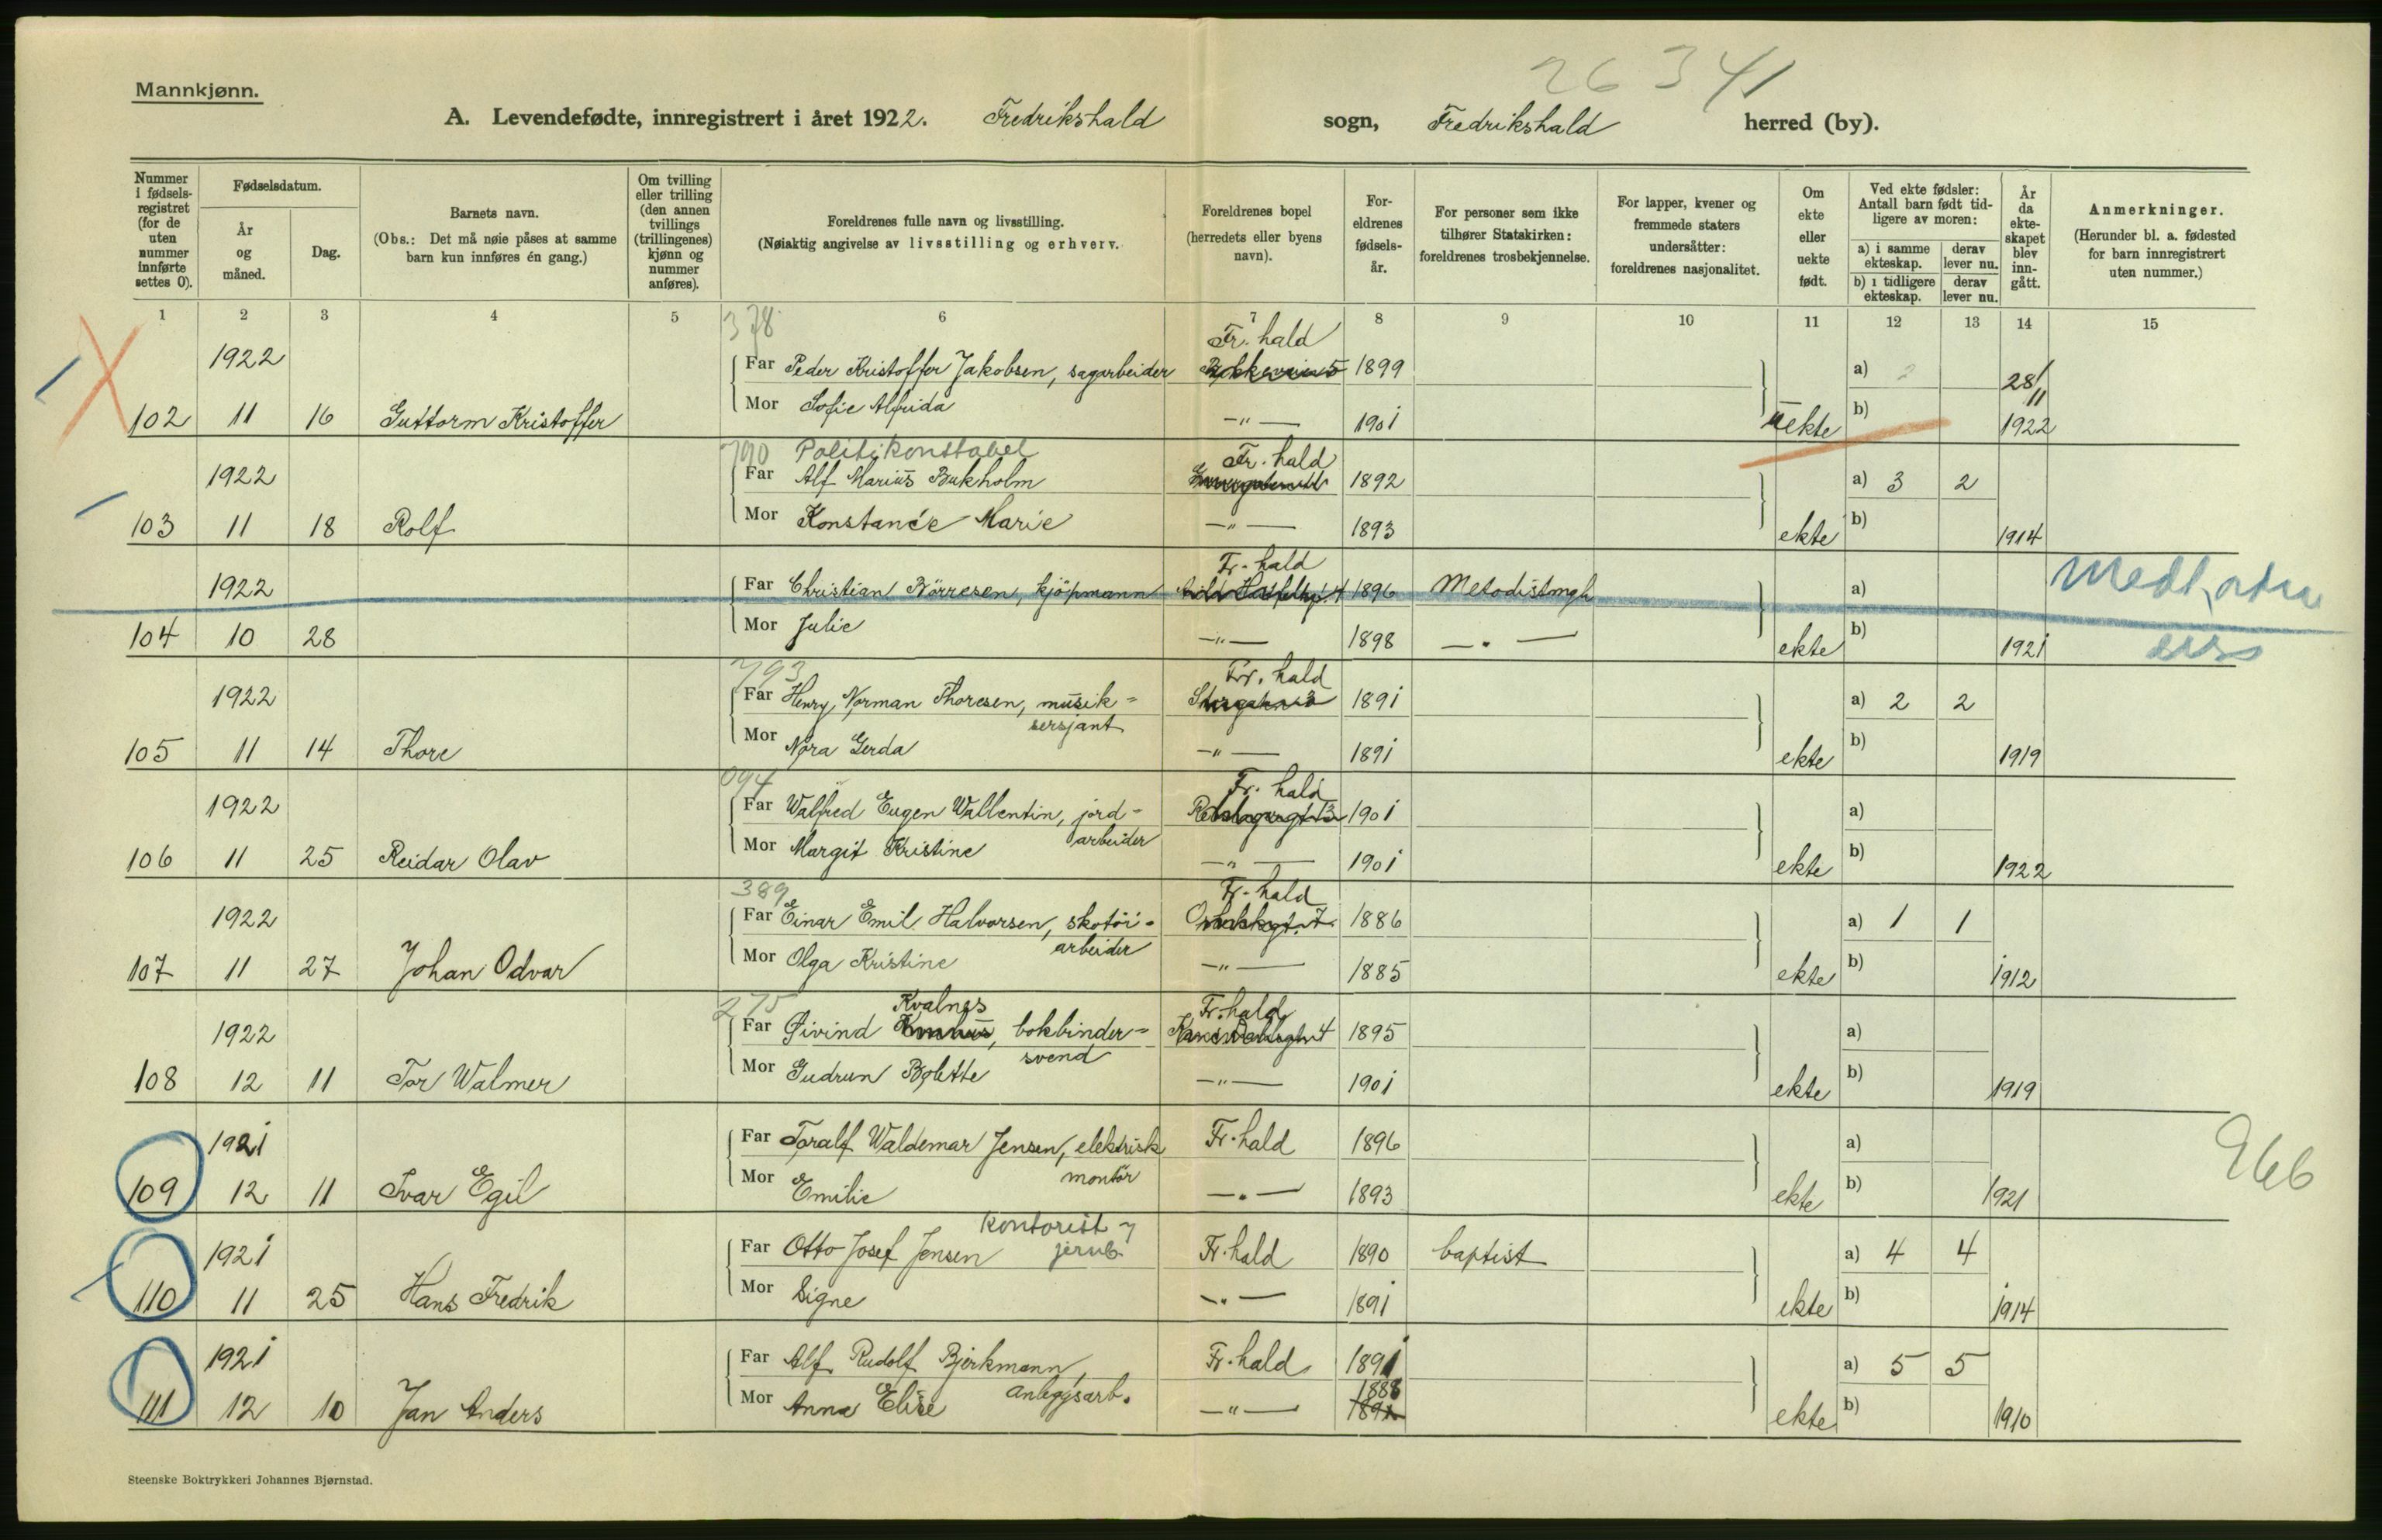 26341
Mannkjønn.
A. Levendefødte, innregistrert i året 1922. Fredrikshald sogn, Fredrikshald herred (by).
Nummer i fødsels-registret (for de uten nummer innførte settes 0).
Fødselsdatum.
År og måned.
Dag.
Barnets navn.
(Obs.: Det må nøie påses at samme barn kun innføres én gang.)
Om tvilling eller trilling (den annen tvillings (trillingenes) kjønn og nummer anføres).
Foreldrenes fulle navn og livsstilling.
(Nøiaktig angivelse av livsstilling og erhverv.
Foreldrenes bopel (herredets eller byens navn).
For-eldrenes fødsels-år.
For personer sem ikke tilhører Statskirken: foreldrenes trosbekjennelse.
For lapper, kvener og fremmede staters undersåtter: foreldrenes nasjonalitet.
Om ekte eller uekte født.
Ved ekte fødsler: Antall barn født tid-ligere av moren:
a) i samme ekteskap. derav lever nu.
b) i tidligere ekteskap. derav lever nu.
År da ekte-skapet blev inn-gått.
Anmerkninger.
(Herunder bl. a. fødested for barn innregistrert uten nummer.)
1 2 3 4 5 6 7 8 9 10 11 12 13 14 15
378 Fr. hald
1922 Far Peder Kristoffer Jakobsen, sagarbeider 1899 a) 2 28/11
102 11 16 Guttorm Kristoffer Mor Sofie Alfrida -"- 1901 uekte b) 1922
790 Politikonstabel Fr. hald
1922 Far Alf Marius Bukholm 1892 a) 3 2
103 11 18 Rolf Mor Konstance Marie -"- 1893 ekte b) 1914
Fr. hald
1922 Far Christian Börresen, kjöpmann 1896 Metodistmgh a)
104 10 28 Mor Julie -"- 1898 -"- ekte b) 1921
793 Fr. hald
1922 Far Henry Norman Thoresen, musik= 1891 a) 2 2
sersjant
105 11 14 Thore Mor Nora Gerda -"- 1891 ekte b) 1919
094 Fr. hald
1922 Far Walfred Eugen Wallentin, jord= 1901 a)
arbeider
106 11 25 Reidar Olav Mor Margit Kristine -"- 1901 ekte b) 1922
389 Fr. hald
1922 Far Einar Emil Halvorsen, skotöi= 1886 a) 1 1
arbeider
107 11 27 Johan Odvar Mor Olga Kristine -"- 1885 ekte b) 1912
275 Kvalnes Fr. hald
1922 Far Øivind bokbinder= 1895 a)
svend
108 12 11 Tor Walmer Mor Gudrun Bolette -"- 1901 ekte b) 1919
1921 Far Toralf Waldemar Jensen, elektrisk Fr. hald 1896 a) 966
montör
109 12 11 Ivar Egil Mor Emilie -"- 1893 ekte b) 1921
kontorist
1921 Far Otto Josef Jensen Fr. hald 1890 baptist a) 4 4
110 11 25 Hans Fredrik Mor Signe -"- 1891 ekte b) 1914
1921 Far Alf Rudolf Bjerkmann, Fr. hald 1891 a) 5 5
anlegsarb. 1888
111 12 10 Jan Anders Mor Anna Elise -"- ekte b) 1910
Steenske Boktrykkeri Johannes Bjørnstad.